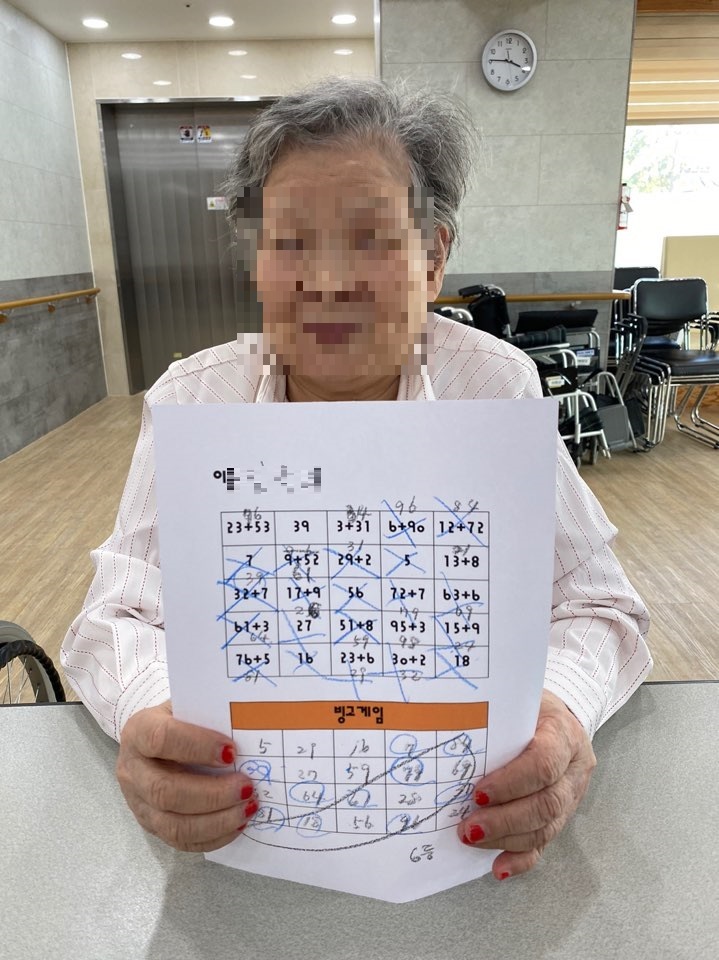 이
76 34 96 84
23+53 39 3+31 6+90 12+72
61 31 21
7 9+52 29+2 5 13+8
39
32+7 17+9 56 72+7 63+6
26 79 69
61+3 27 51+8 95+3 15+9
64 59 98
76+5 16 23+6 30+2 18
29 32
빙고게임
5 29 16 7
39 27 59 79 69
64 61 28
18 56 96 24
6등